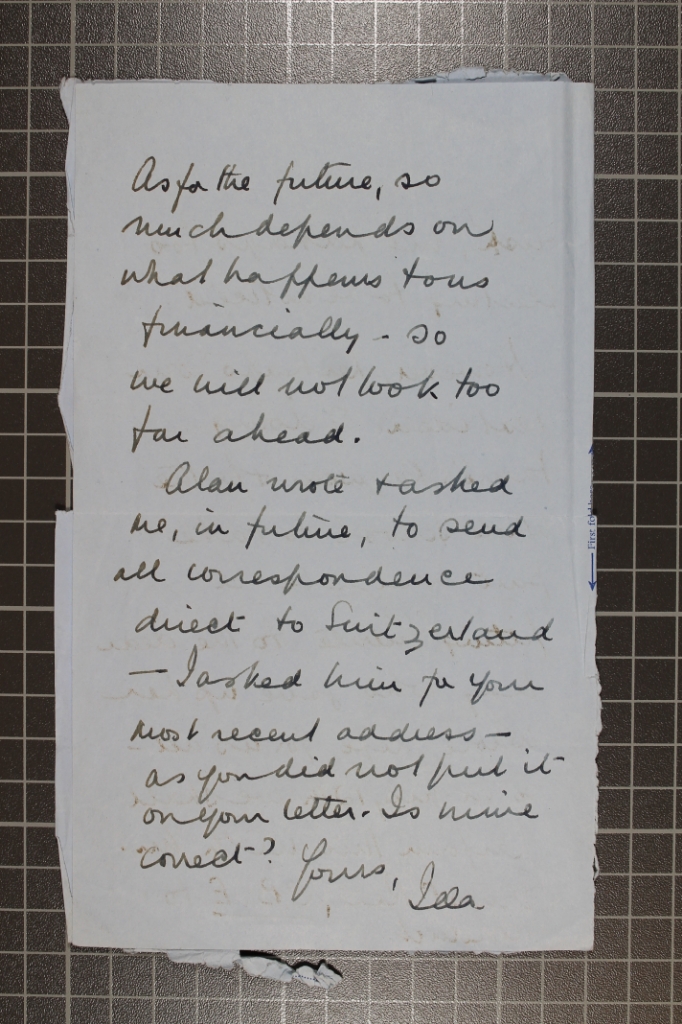 As for the future, so
much depends on
what happens to us
financially - so
we will not look too
far ahead.
Alan wrote + asked
me, in future, to send
all correspondence
direct to Switzerland
— I asked him for your
most recent address —
as you did not put it
on your letter. Is mine
correct?
Yours,
First fold